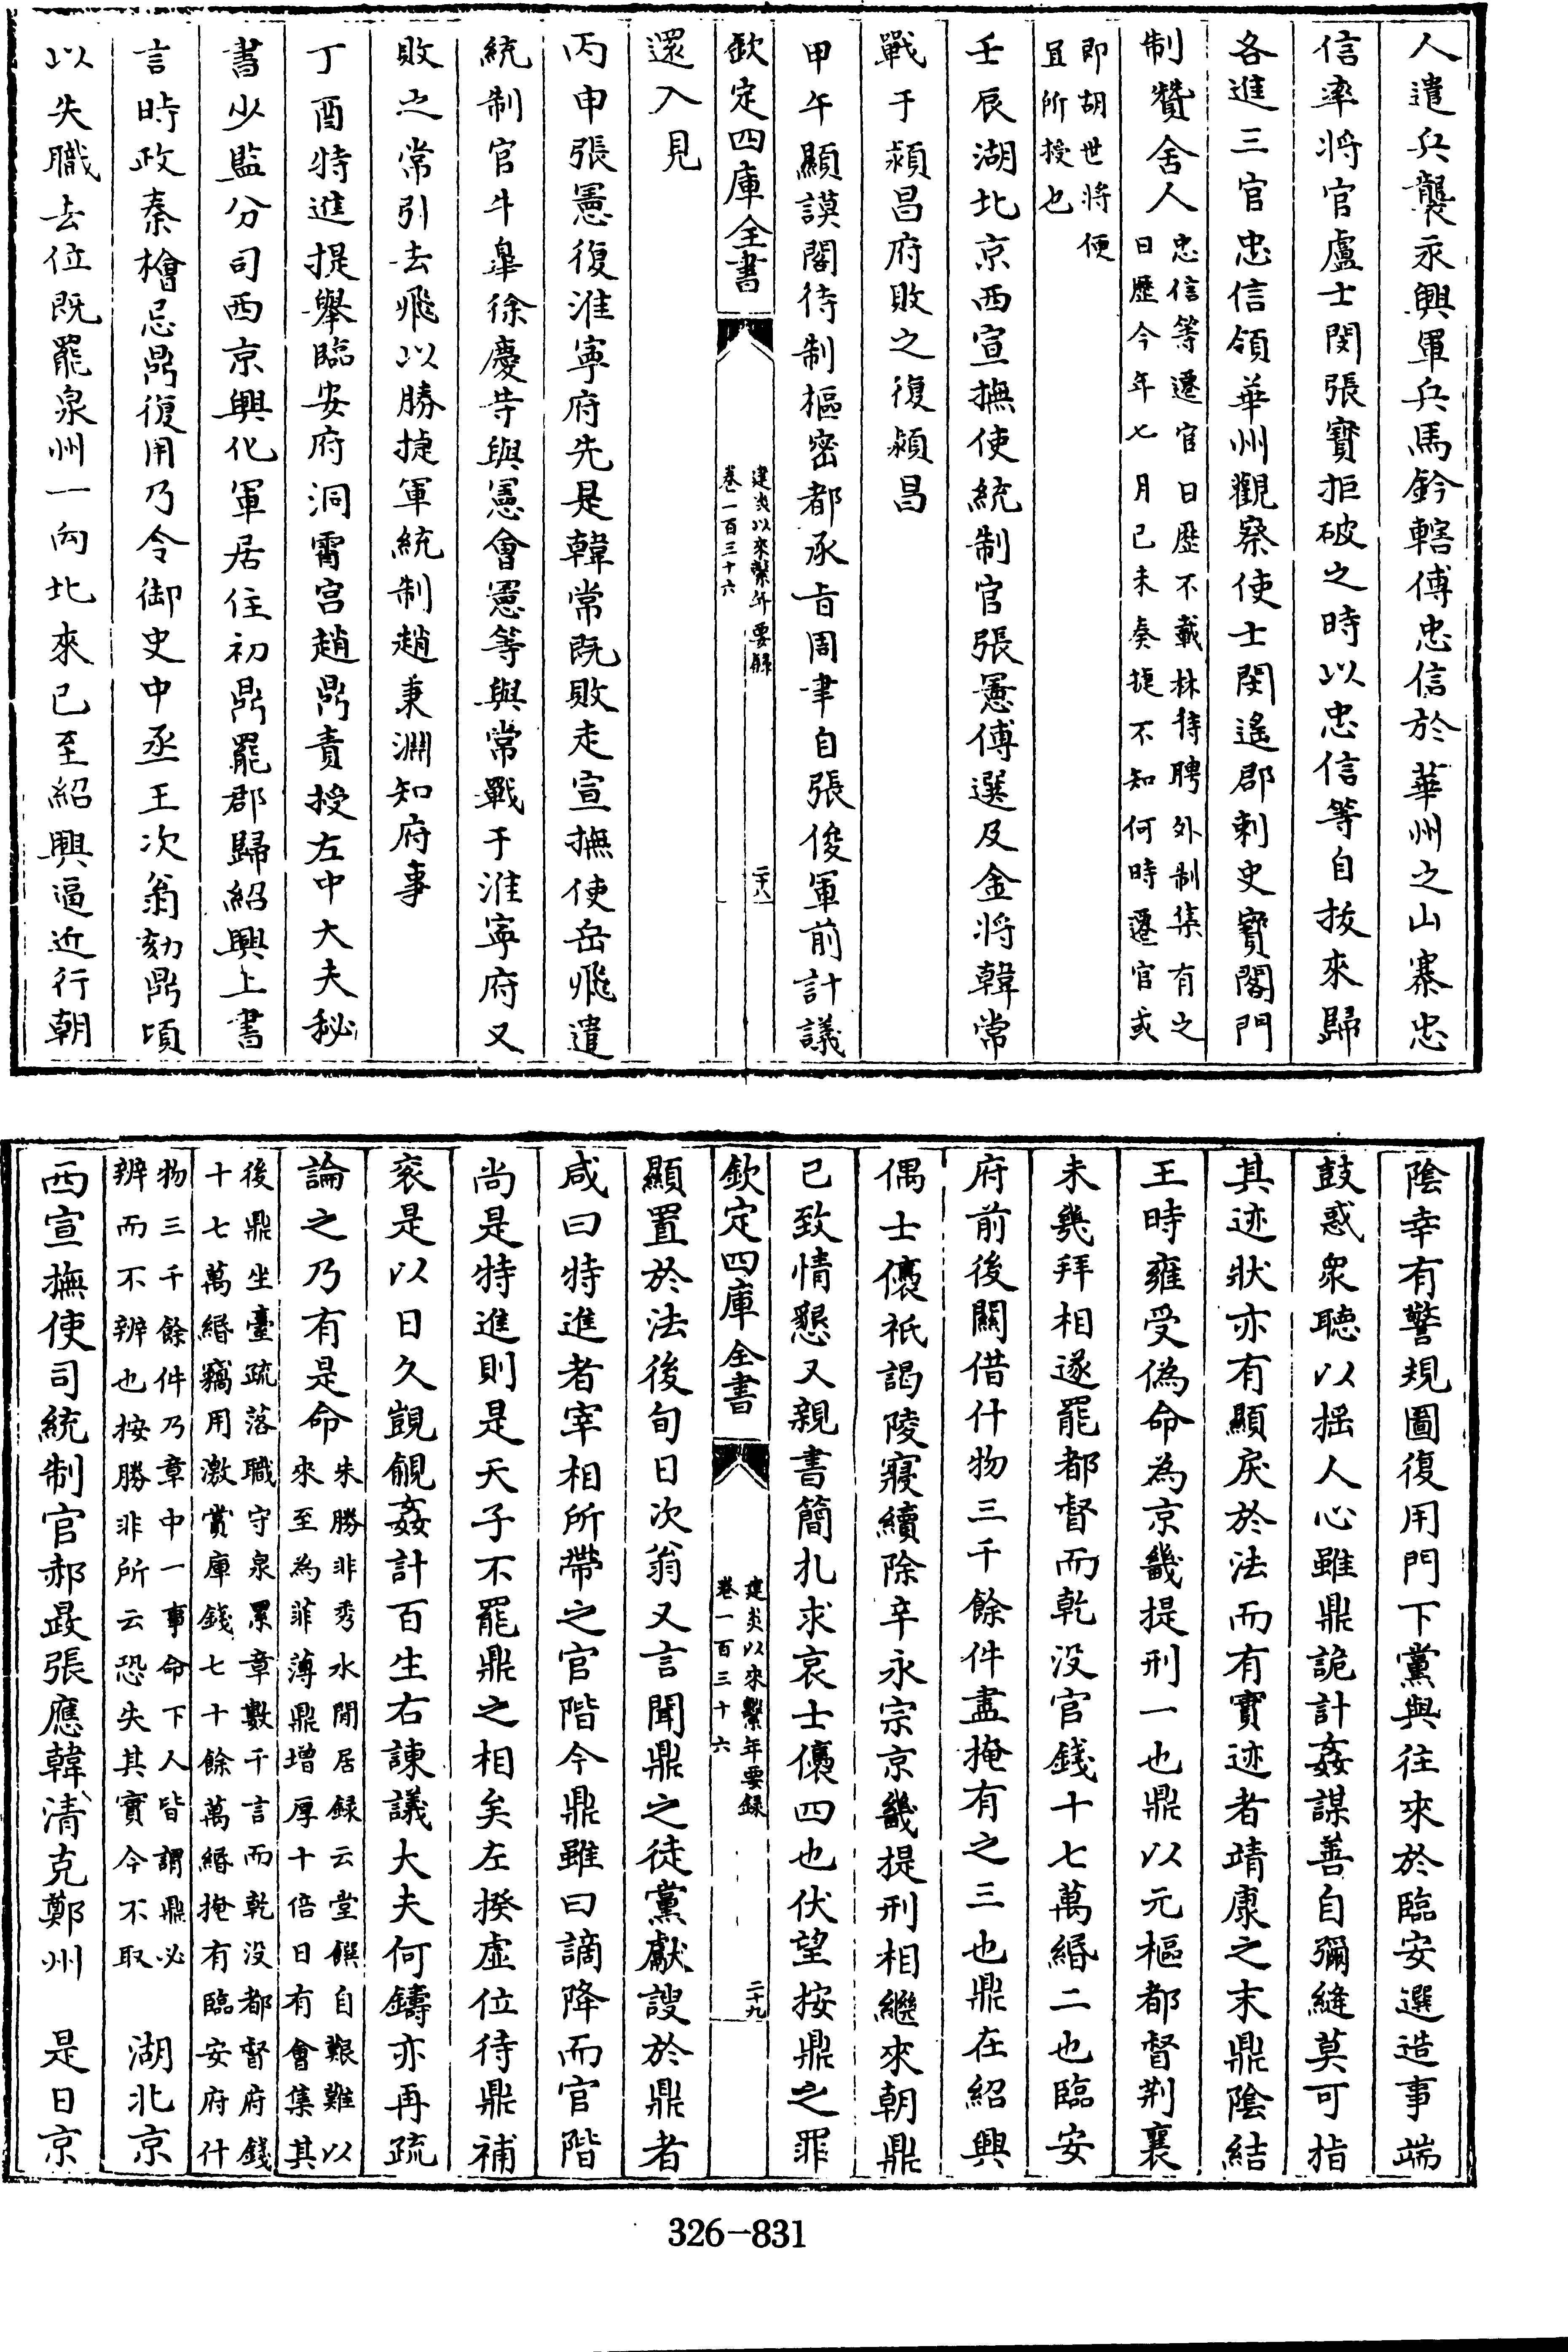 人遣兵襲永興軍兵馬鈐轄傅忠信於華州之山寨忠
信率將官盧士閔張寶拒破之時以忠信等自拔來歸
各進三官忠信領華州觀察使士閔遙郡刺史寶閤門
制贊舍人忠信等遷官日歷不載林待聘外制集有之
日歷今年七月己未奏捷不知何時遷官或
即胡世將便
且所授也
壬辰湖北京西宣撫使統制官張憲傅選及金將韓常
戰于潁昌府敗之復潁昌
甲午顯謨閣待制樞密都承旨周聿自張俊軍前計議
欽定四庫全書
建炎以來繫年要錄
卷一百三十六
二十八
還入見
丙申張憲復淮寧府先是韓常既敗走宣撫使岳飛遣
統制官牛臯徐慶等與憲會憲等與常戰于淮寧府又
敗之常引去飛以勝捷軍統制趙秉淵知府事
丁酉特進提舉臨安府洞霄宮趙鼎責授左中大夫秘
書少監分司西京興化軍居住初鼎罷郡歸紹興上書
言時政秦檜忌鼎復用乃令御史中丞王次翁劾鼎頃
以失職去位既罷泉州一向北來已至紹興逼近行朝
陰幸有警規圖復用門下黨與往來於臨安選造事端
鼓惑衆聽以揺人心雖鼎詭計姦謀善自彌縫莫可指
其迹狀亦有顯戾於法而有實迹者靖康之末鼎陰結
王時雍受偽命為京畿提刑一也鼎以元樞都督荆襄
未幾拜相遂罷都督而乾没官錢十七萬緡二也臨安
府前後闗借什物三千餘件盡掩有之三也鼎在紹興
偶士㒟祇謁陵寢續除辛永宗京畿提刑相繼來朝鼎
已致情懇又親書簡札求哀士㒟四也伏望按鼎之罪
欽定四庫全書
建炎以來繫年要錄
卷一百三十六
二十九
顯置於法後旬日次翁又言聞鼎之徒黨獻諛於鼎者
咸曰特進者宰相所帶之官階今鼎雖曰謫降而官階
尚是特進則是天子不罷鼎之相矣左揆虚位待鼎補
衮是以日久覬覦姦計百生右諫議大夫何鑄亦再疏
論之乃有是命朱勝非秀水閒居録云堂饌自艱難以
來至為菲薄鼎增厚十倍日有會集其
後鼎坐臺疏落職守泉累章數千言而乾没都督府錢
十七萬緡竊用激賞庫錢七十餘萬緡掩有臨安府什
物三千餘件乃章中一事命下人皆謂鼎必
辨而不辨也按勝非所云恐失其實今不取　湖北京
西宣撫使司統制官郝晸張應韓清克鄭州　是日京
326-831